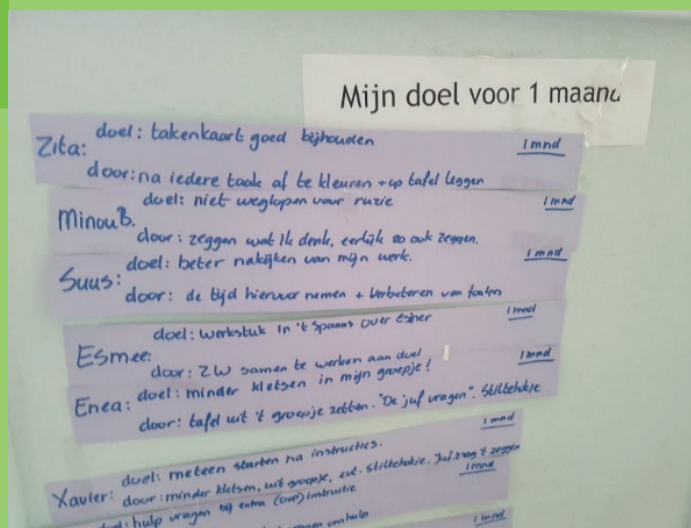 Mijn doel voor 1 maand
Zita: doel: takenkaart goed bijhouden 1 mnd
door: na iedere taak af te kleuren + op tafel leggen
Minou B. doel: niet weglopen voor ruzie 1 mnd
door: zeggen wat ik denk, eerlijk zo ook zeggen.
Suus: doel: beter nakijken van mijn werk. 1 mnd
door: de tijd hiervoor nemen + verbeteren van fouten
Esmee: doel: werkstuk in 't Spaans over 1 mnd
door: ZW samen te werken aan doel
Enea: doel: minder kletsen in mijn groepje! 1 mnd
door: tafel uit 't groepje zetten. "De juf vragen". Stiltehokje
Xavier: doel: meteen starten na instructies. 1 mnd
door: minder kletsen, uit groepje, evt. stiltehokje. Juf mag 't zeggen
hulp vragen bij extra instructie 1 mnd
1 mnd